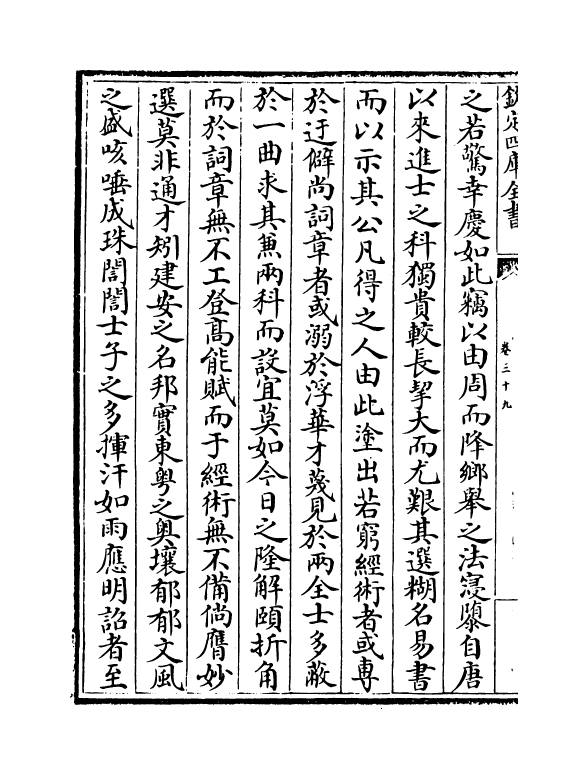 欽定四庫全書
卷三十九
之若驚幸慶如此竊以由周而降鄉舉之法寖隳自唐
以來進士之科獨貴較長挈大而尤艱其選糊名易書
而以示其公凡得之人由此塗出若窮經術者或專
於迂僻尚詞章者或溺於浮華才蔑見於兩全士多蔽
於一曲求其兼兩科而設宜莫如今日之隆解頤折角
而於詞章無不工登高能賦而于經術無不備倘膺妙
選莫非通才矧建安之名邦實東粤之奥壤郁郁文風
之盛咳唾成珠誾誾士子之多揮汗如雨應明詔者至